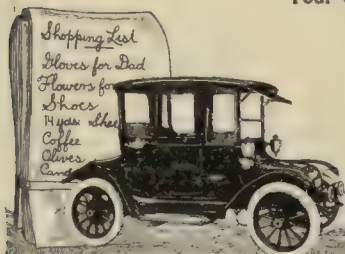 Shopping List
Gloves for Dad
Flowers for
Shoes
14 yds. Shee
Coffee
Olives
Cand